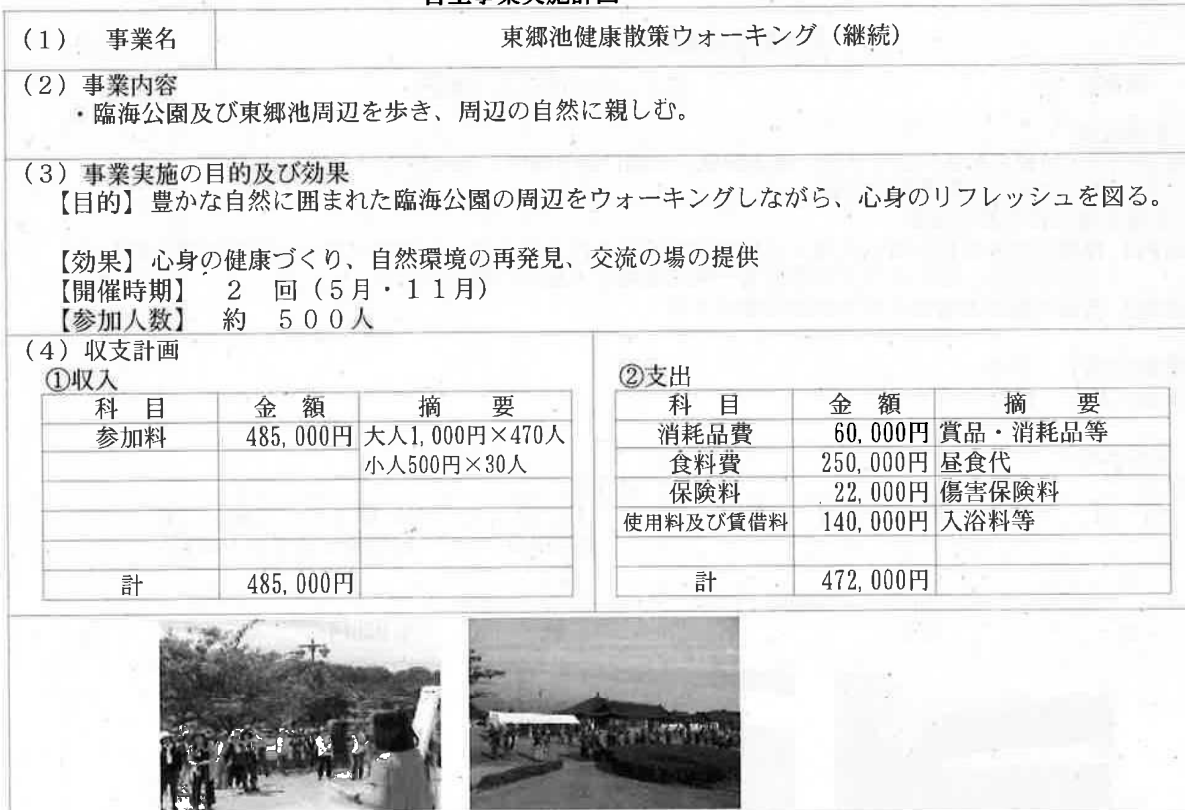 (1) 事業名
東郷池健康散策ウォーキング(継続)
(2)事業内容
・臨海公園及び東郷池周辺を歩き、周辺の自然に親しむ。
(3)事業実施の目的及び効果
【目的】豊かな自然に囲まれた臨海公園の周辺をウォーキングしながら、心身のリフレッシュを図る。
【効果】心身の健康づくり、自然環境の再発見、交流の場の提供
【開催時期】 2 回(5月・11月)
【参加人数】 約 500人
(4)収支計画
①収入
科 目 金 額 摘 要
参加料 485,000円 大人1,000円×470人
小人500円×30人
計 485,000円
②支出
科 目 金 額 摘 要
消耗品費 60,000円 賞品・消耗品等
食料費 250,000円 昼食代
保険料 22,000円 傷害保険料
使用料及び賃借料 140,000円 入浴料等
計 472,000円